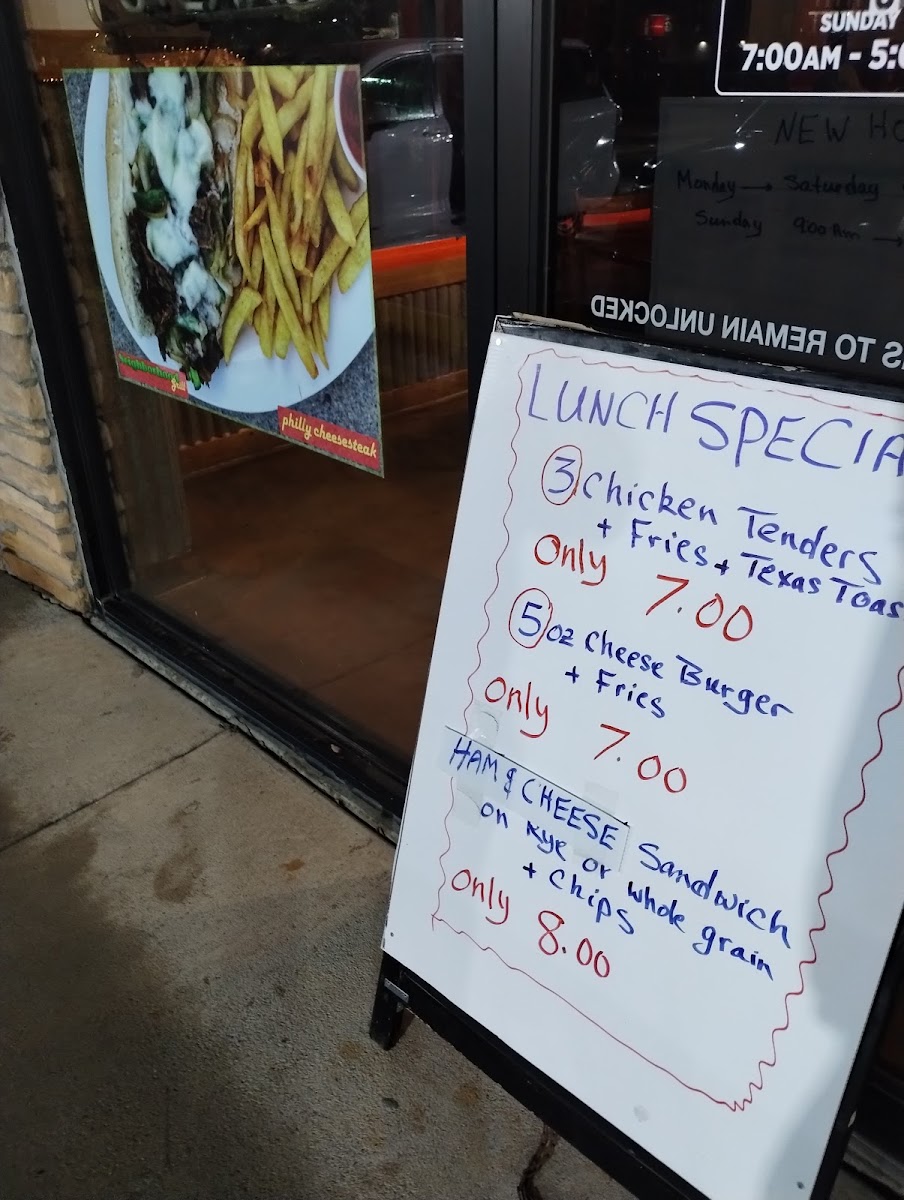 SUNDAY
7:00AM - 5:0
NEW HO
Monday → Saturday
Sunday 9:00 Am →
S TO REMAIN UNLOCKED
philly cheesesteak
grill
LUNCH SPECIA
3 Chicken Tenders
+ Fries + Texas Toas
Only 7.00
5 oz Cheese Burger
+ Fries
Only 7.00
HAM & CHEESE Sandwich
on Rye or whole grain
+ Chips
Only 8.00